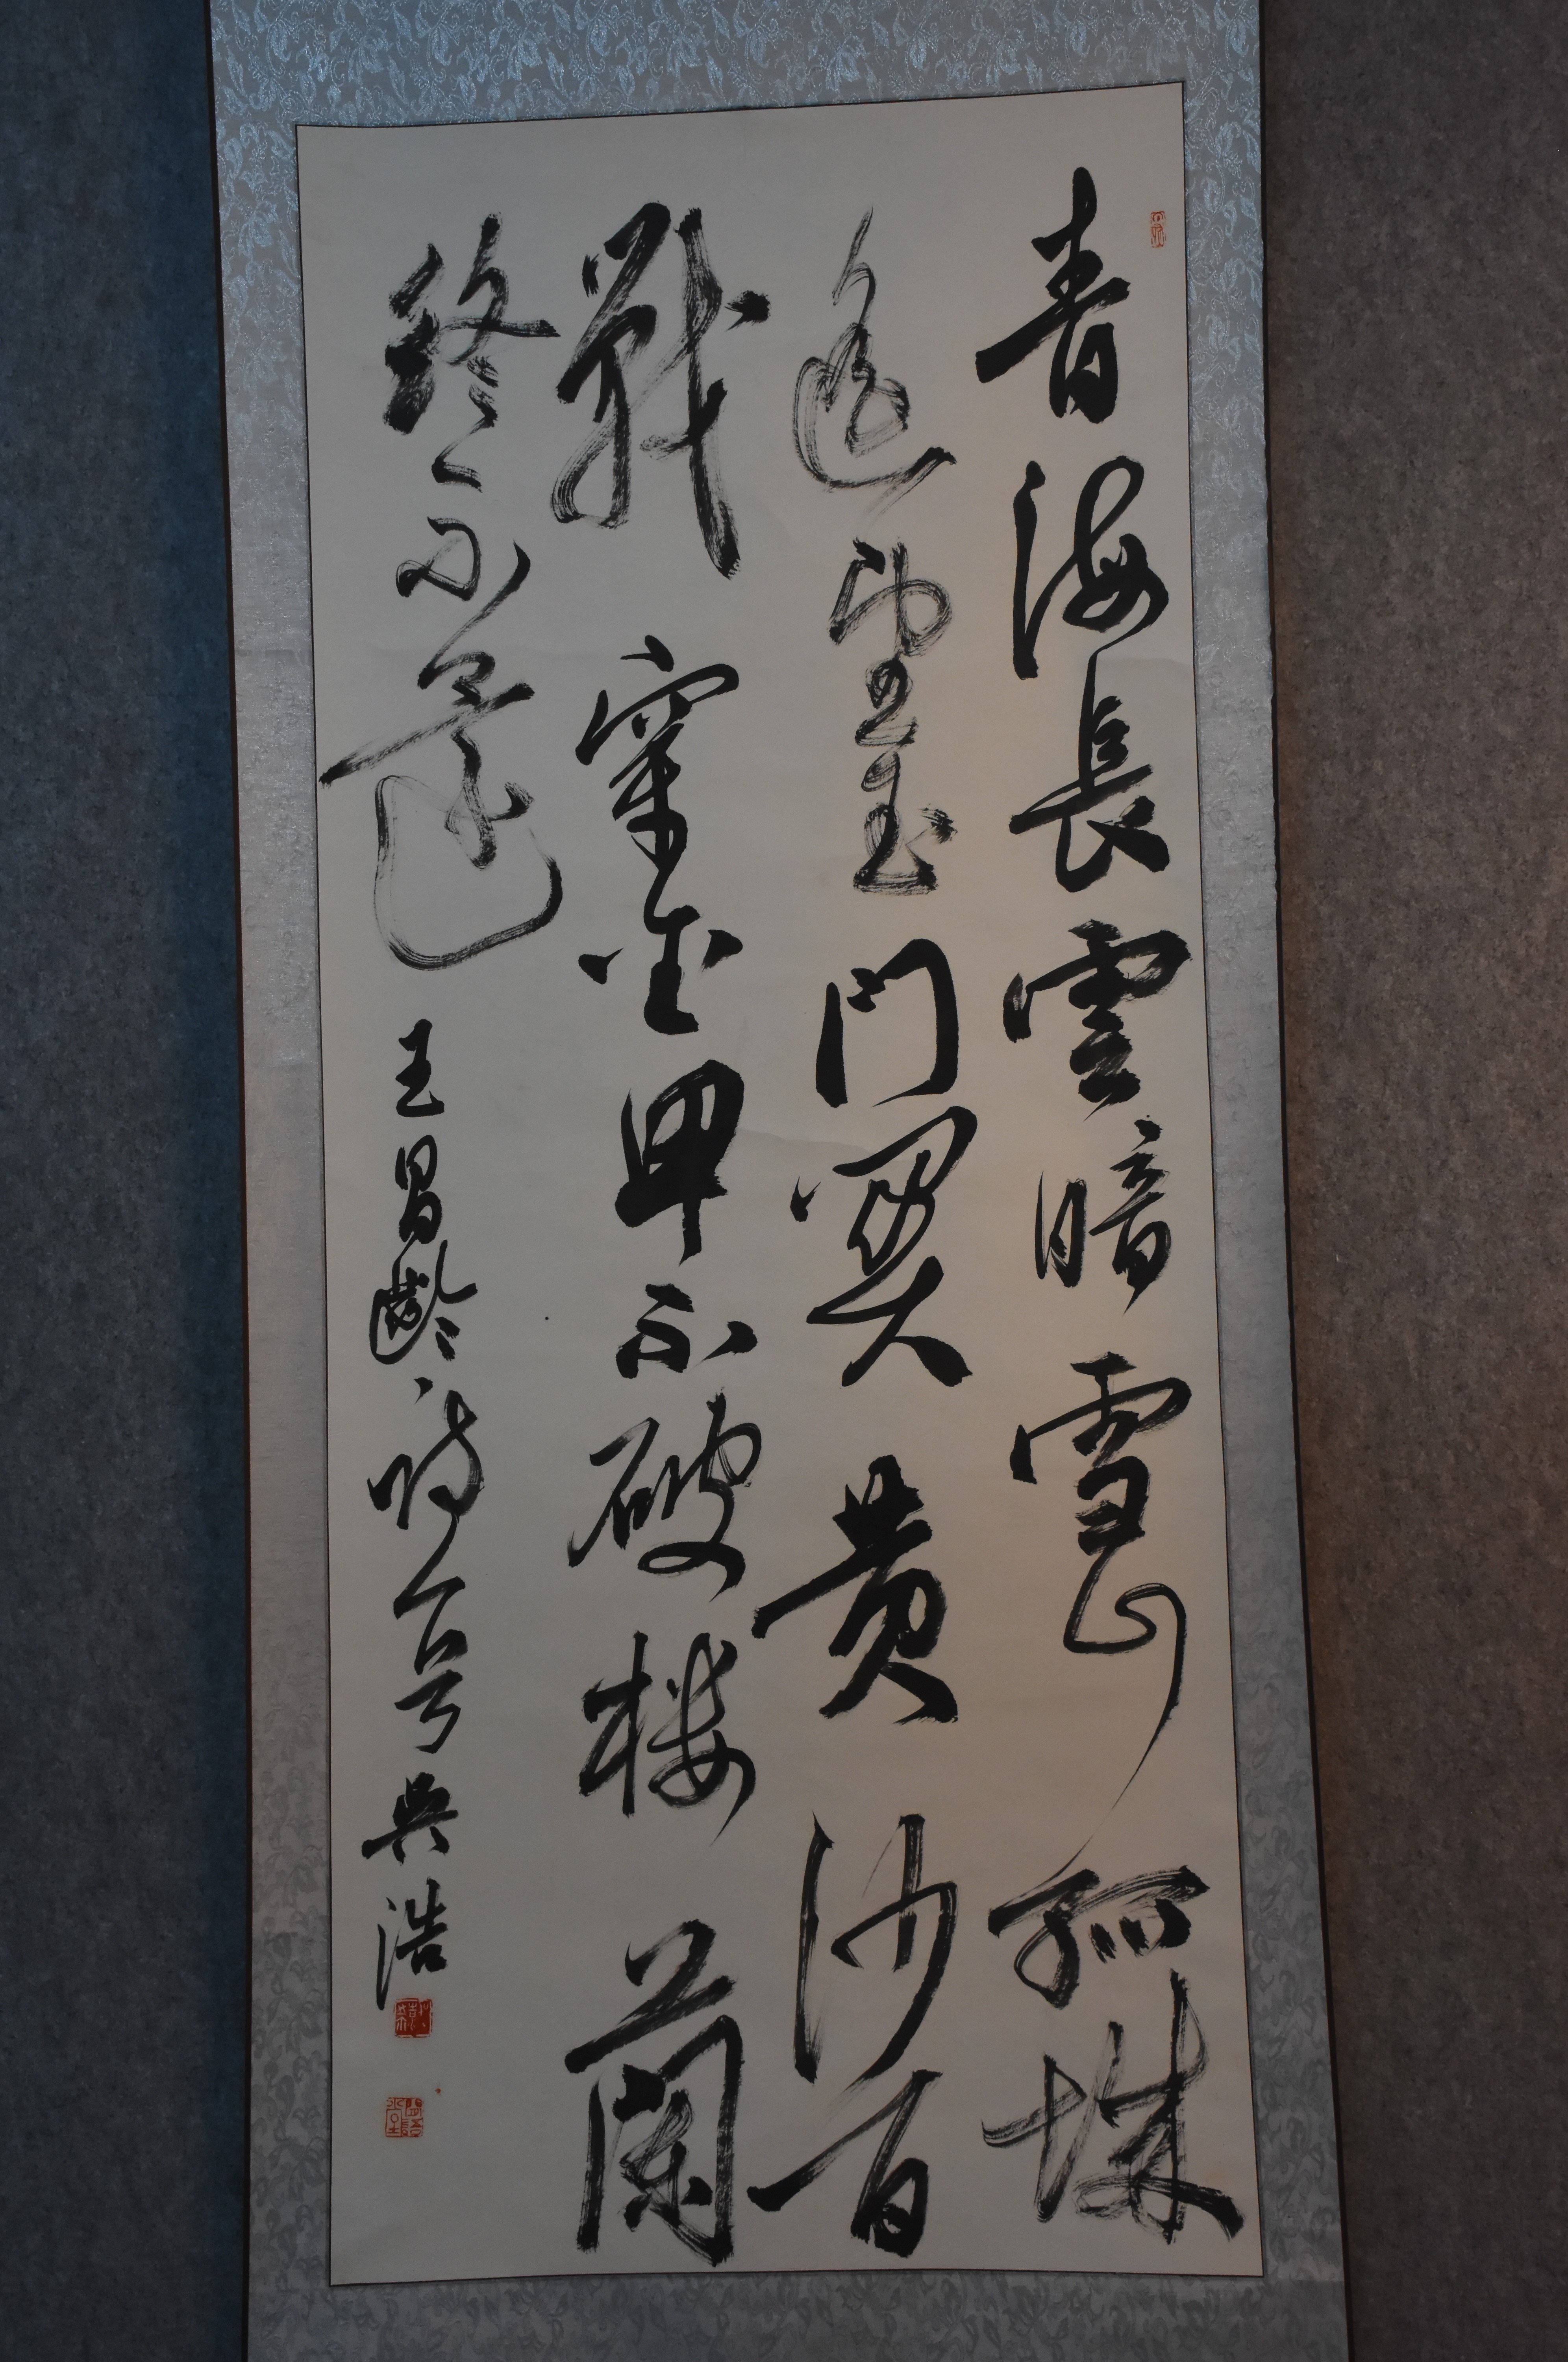 青海長雲暗雪山孤城
遙望玉門関黄沙百
戰穿金甲不破楼蘭
終不還 王昌齡詩一首 吴浩